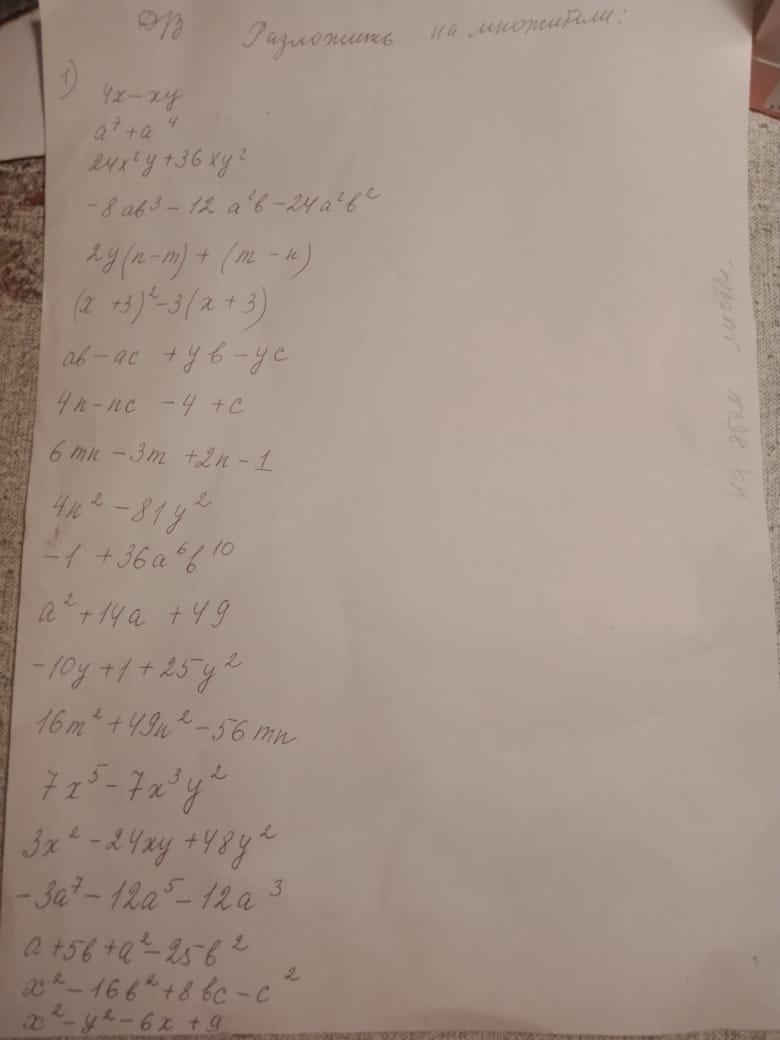 ДЗ Разложить на множители:
1)
4x-xy
a⁷+a⁴
24x²y+36xy²
-8ab³-12a²b-24a²b²
2y(n-m)+(m-n)
(x+3)²-3(x+3)
ab-ac+yb-yc
4n-nc-4+c
6mn-3m+2n-1
4n²-81y²
-1+36a⁶b¹⁰
a²+14a+49
-10y+1+25y²
16m²+49n²-56mn
7x⁵-7x³y²
3x²-24xy+48y²
-3a⁷-12a⁵-12a³
a+5b+a²-25b²
x²-16b²+8bc-c²
x²-y²-6x+9
на этом листе.